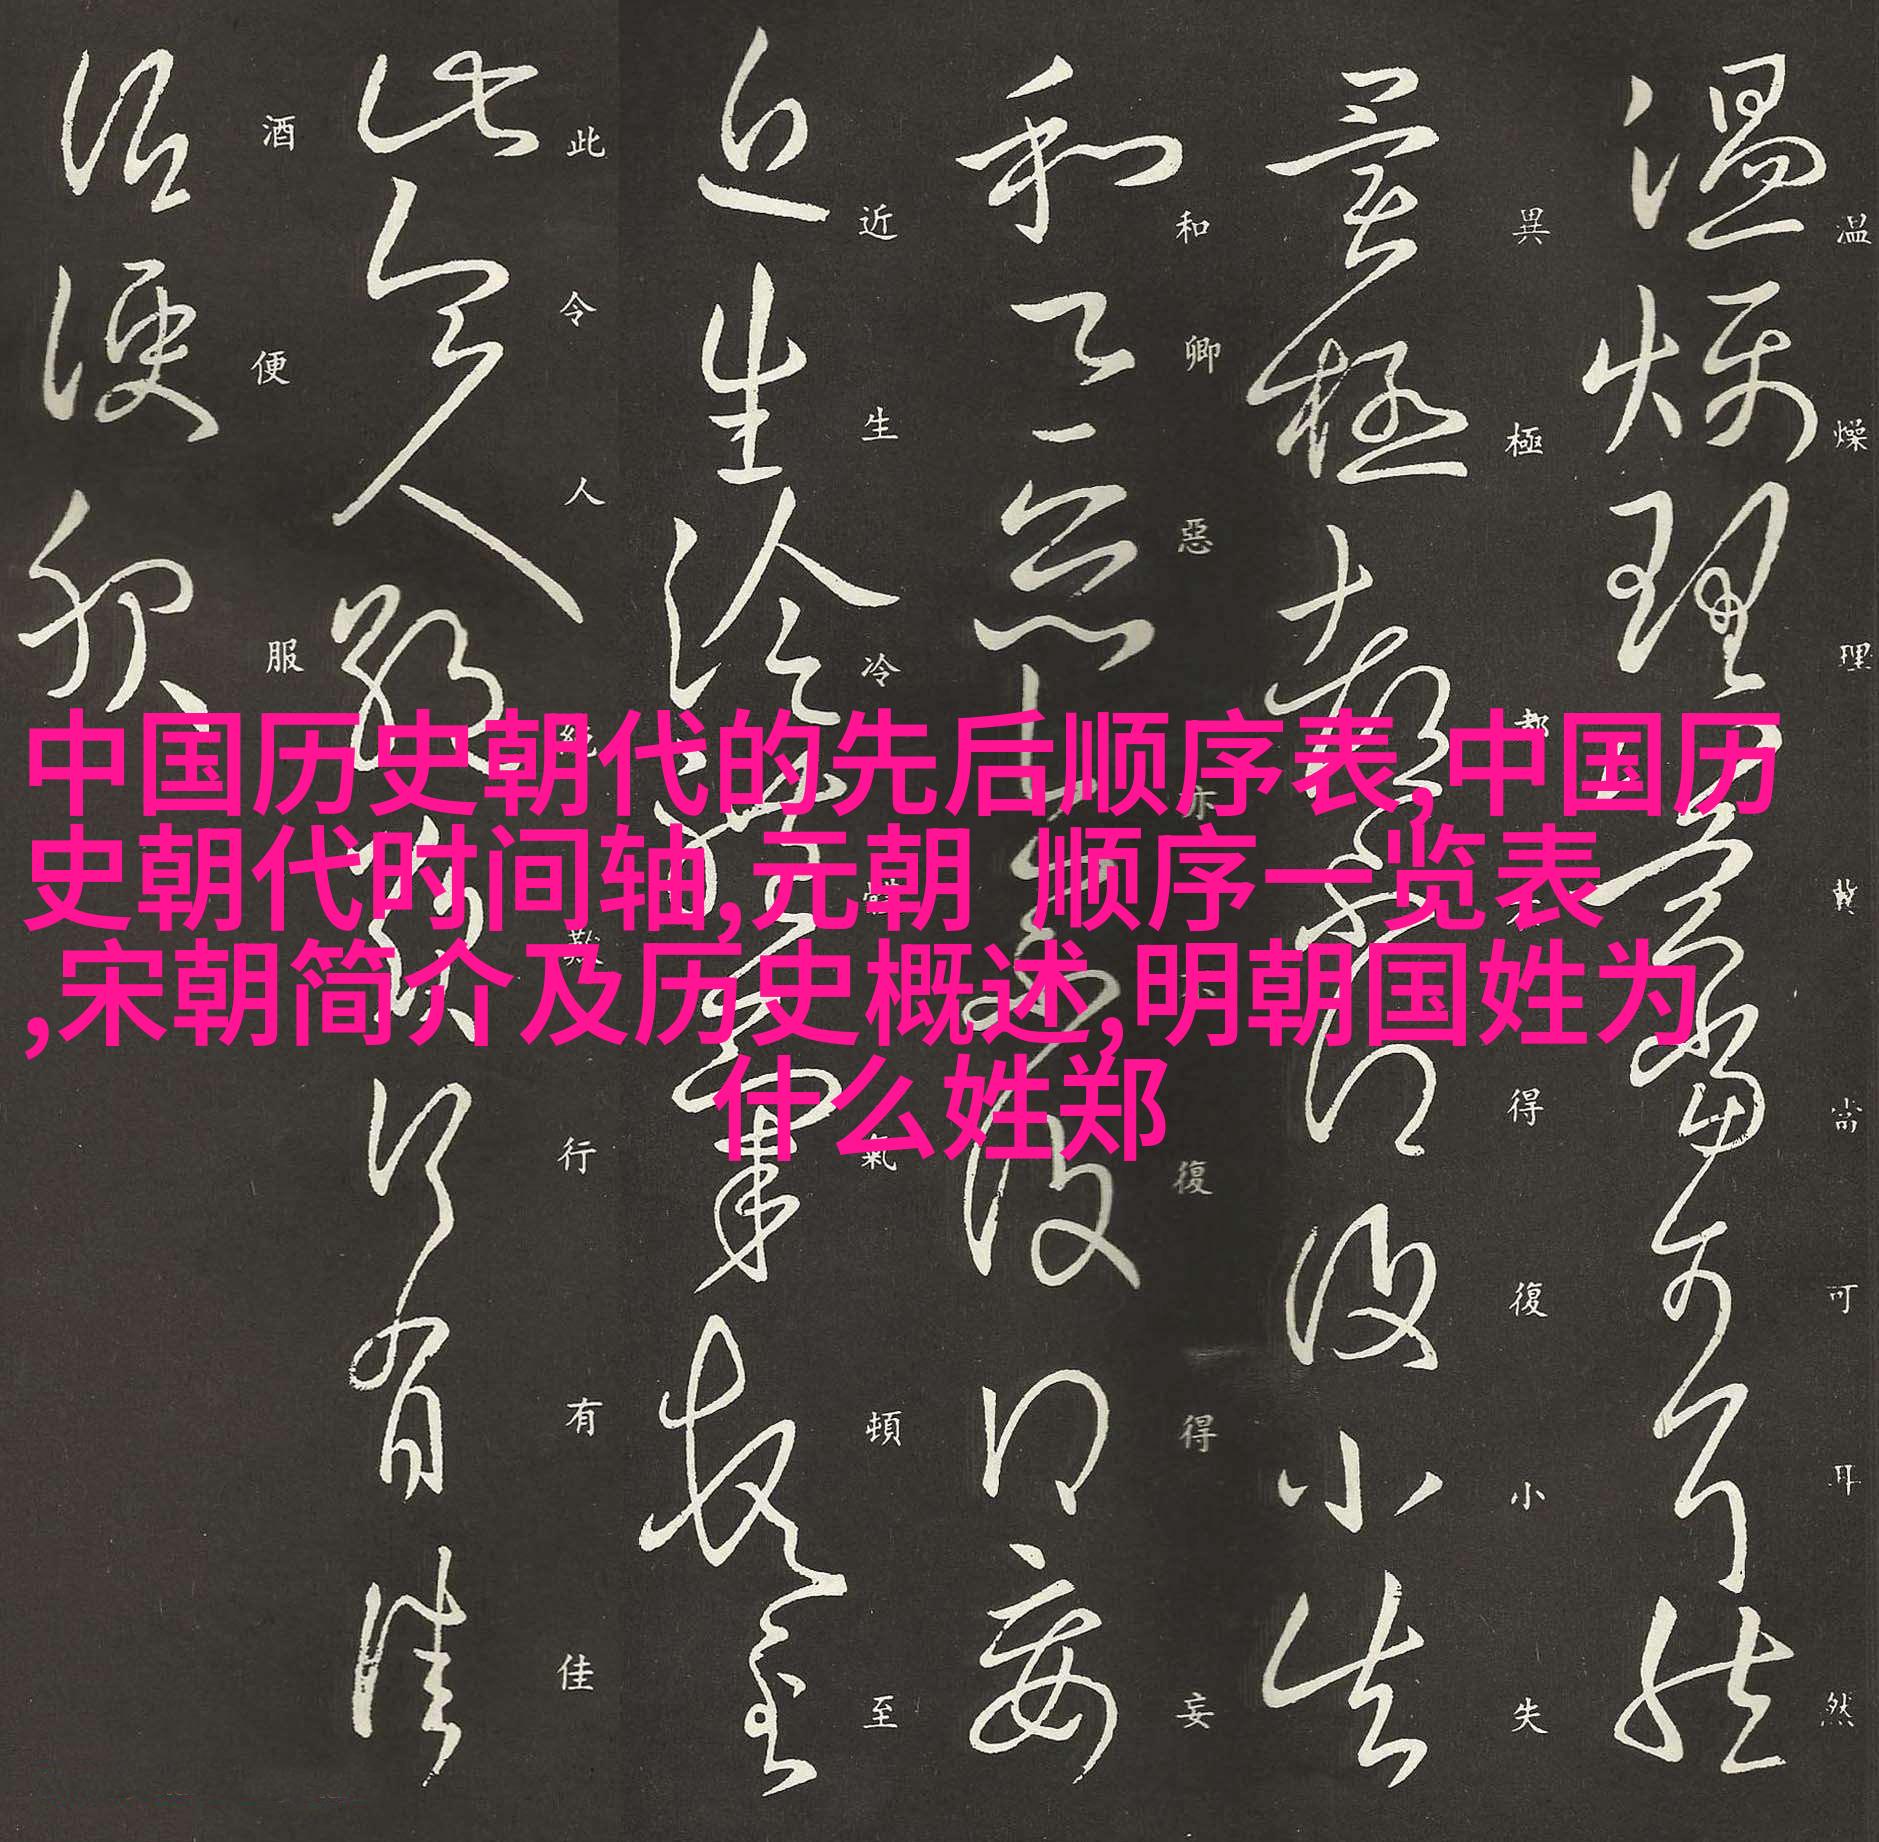 中国历史朝代的先后顺序表,中国历
史朝代时间轴,元朝 顺序一览表
,宋朝简介及历史概述,明朝国姓为
什么姓郑
温燥理當可耳然
異極都得復小失
和卿惡亦復得妄
近生冷體氣頓至
此令人行有佳
酒便服